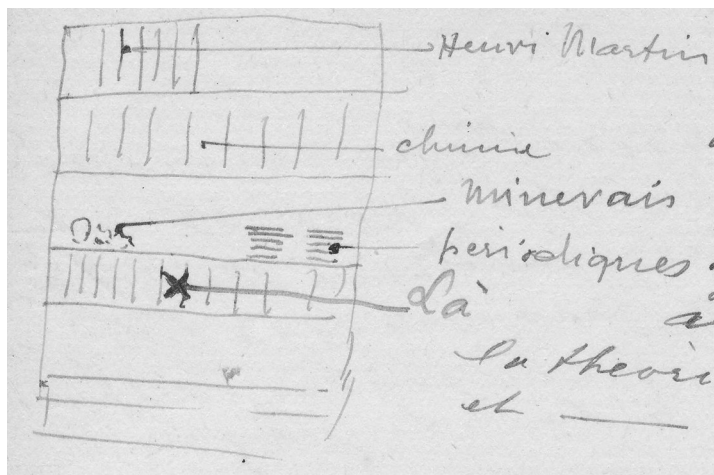 Henri Martin
chimie
minerais
périodiques
Là à
la théori
et